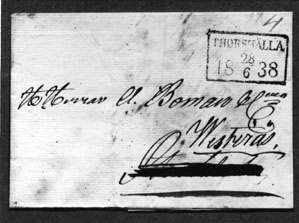 4
THORSHÄLLA
28
18 6 38
Herrar C. Boman & Co
Westerås